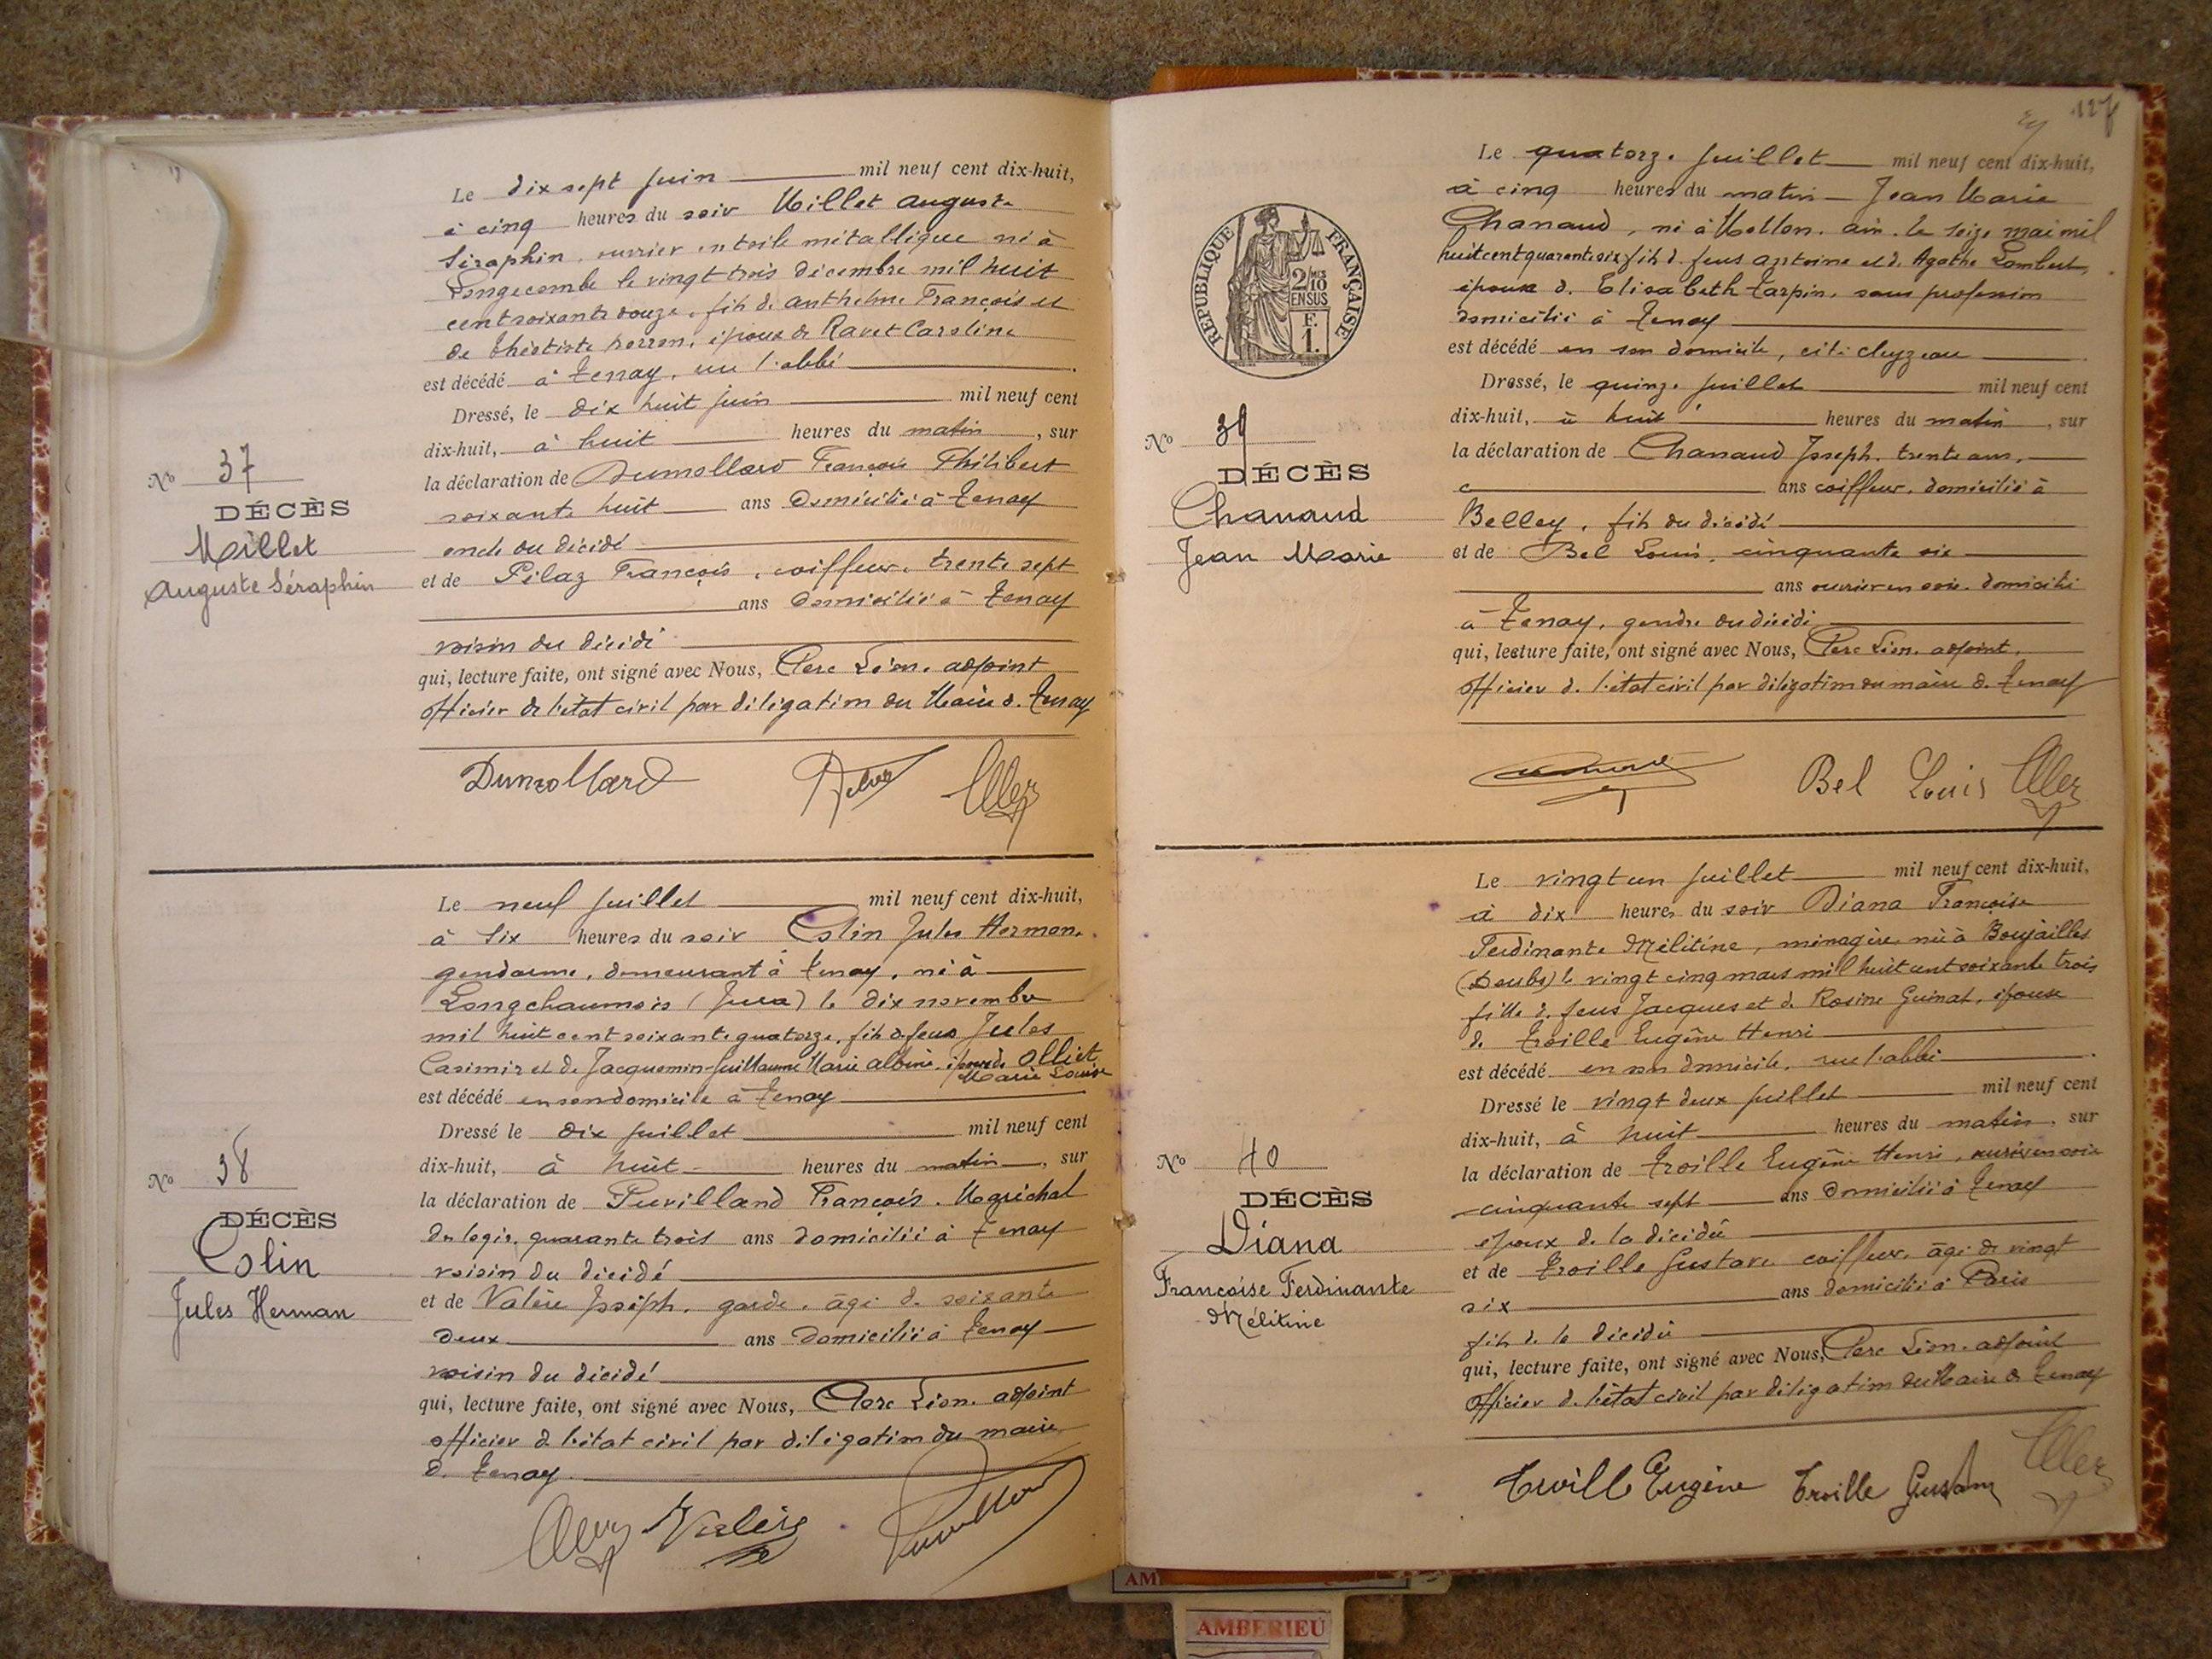 Le dix sept juin mil neuf cent dix-huit,
à cinq heures du soir Millet Auguste
Séraphin, ouvrier en toile métallique né à
Longecombe le vingt trois décembre mil huit
cent soixante douze, fils de Anthelme François et
de Théotiste Perron, époux de Ravet Caroline
est décédé à Tenay, rue l'abbé
Dressé, le dix huit juin mil neuf cent
dix-huit, à huit heures du matin, sur
la déclaration de Dumollard François Philibert
soixante huit ans domicilié à Tenay
oncle du décédé
et de Pilaz François, coiffeur, trente sept
ans domicilié à Tenay
voisin du décédé
qui, lecture faite, ont signé avec Nous, Clerc Léon, adjoint
officier de l'état civil par délégation du Maire de Tenay
Dumollard
No 37
DÉCÈS
Millet
Auguste Séraphin
Le neuf juillet mil neuf cent dix-huit,
à six heures du soir Colin Jules Herman,
gendarme, demeurant à Tenay, né à
Longchaumois (Jura) le dix novembre
mil huit cent soixante quatorze, fils de feus Jules
Casimir et de Jacquemin-Guillaume Marie Albine, époux de Olliet
Marie Louise
est décédé en son domicile à Tenay
Dressé le dix juillet mil neuf cent
dix-huit, à huit heures du matin, sur
la déclaration de Puvilland François, Maréchal
des logis, quarante trois ans domicilié à Tenay
voisin du décédé
et de Valère Joseph, garde, âgé de soixante
deux ans domicilié à Tenay
voisin du décédé
qui, lecture faite, ont signé avec Nous, Clerc Léon, adjoint
officier de l'état civil par délégation du maire
de Tenay
Valère
No 38
DÉCÈS
Colin
Jules Herman
127
Le quatorze juillet mil neuf cent dix-huit,
à cinq heures du matin Jean Marie
Chanaud, né à Mollon, Ain, le seize mai mil
huit cent quarante six, fils de feus Antoine et de Agathe Lambert,
époux de Elisabeth Tarpin, sans profession
domicilié à Tenay
est décédé en son domicile, cité cleyzeau
Dressé, le quinze juillet mil neuf cent
dix-huit, à huit heures du matin, sur
la déclaration de Chanaud Joseph, trente ans,
ans coiffeur, domicilié à
Belley, fils du décédé
et de Bel Louis, cinquante six
ans ouvrier en soie, domicilié
à Tenay, gendre du décédé
qui, lecture faite, ont signé avec Nous, Clerc Léon, adjoint,
officier de l'état civil par délégation du maire de Tenay
Bel Louis
RÉPUBLIQUE FRANÇAISE
2/10 MES
EN SUS
F.
1.
No 39
DÉCÈS
Chanaud
Jean Marie
Le vingt un juillet mil neuf cent dix-huit,
à dix heures du soir Diana Françoise
Ferdinante Mélitine, ménagère, née à Boujailles
(Doubs) le vingt cinq mars mil huit cent soixante trois
fille de feus Jacques et de Rosine Guinat, épouse
de Troille Eugène Henri
est décédé en son domicile, rue l'abbé
Dressé le vingt deux juillet mil neuf cent
dix-huit, à huit heures du matin, sur
la déclaration de Troille Eugène Henri, ouvrier en soie
cinquante sept ans domicilié à Tenay
époux de la décédée
et de Troille Gustave, coiffeur, âgé de vingt
six ans domicilié à Paris
fils de la décédée
qui, lecture faite, ont signé avec Nous, Clerc Léon, adjoint
officier de l'état civil par délégation du Maire de Tenay
Troille Eugène Troille Gustave
No 40
DÉCÈS
Diana
Françoise Ferdinante
Mélitine
AMBERIEU